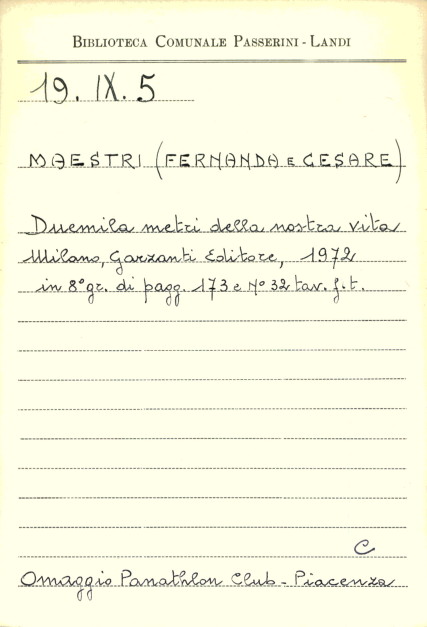 BIBLIOTECA COMUNALE PASSERINI - LANDI
19. IX. 5
MAESTRI (FERNANDA E CESARE)
Duemila metri della nostra vita
Milano, Garzanti Editore, 1972
in 8° gr. di pagg. 173 e N° 32 tav. f. t.
C
Omaggio Panathlon Club - Piacenza